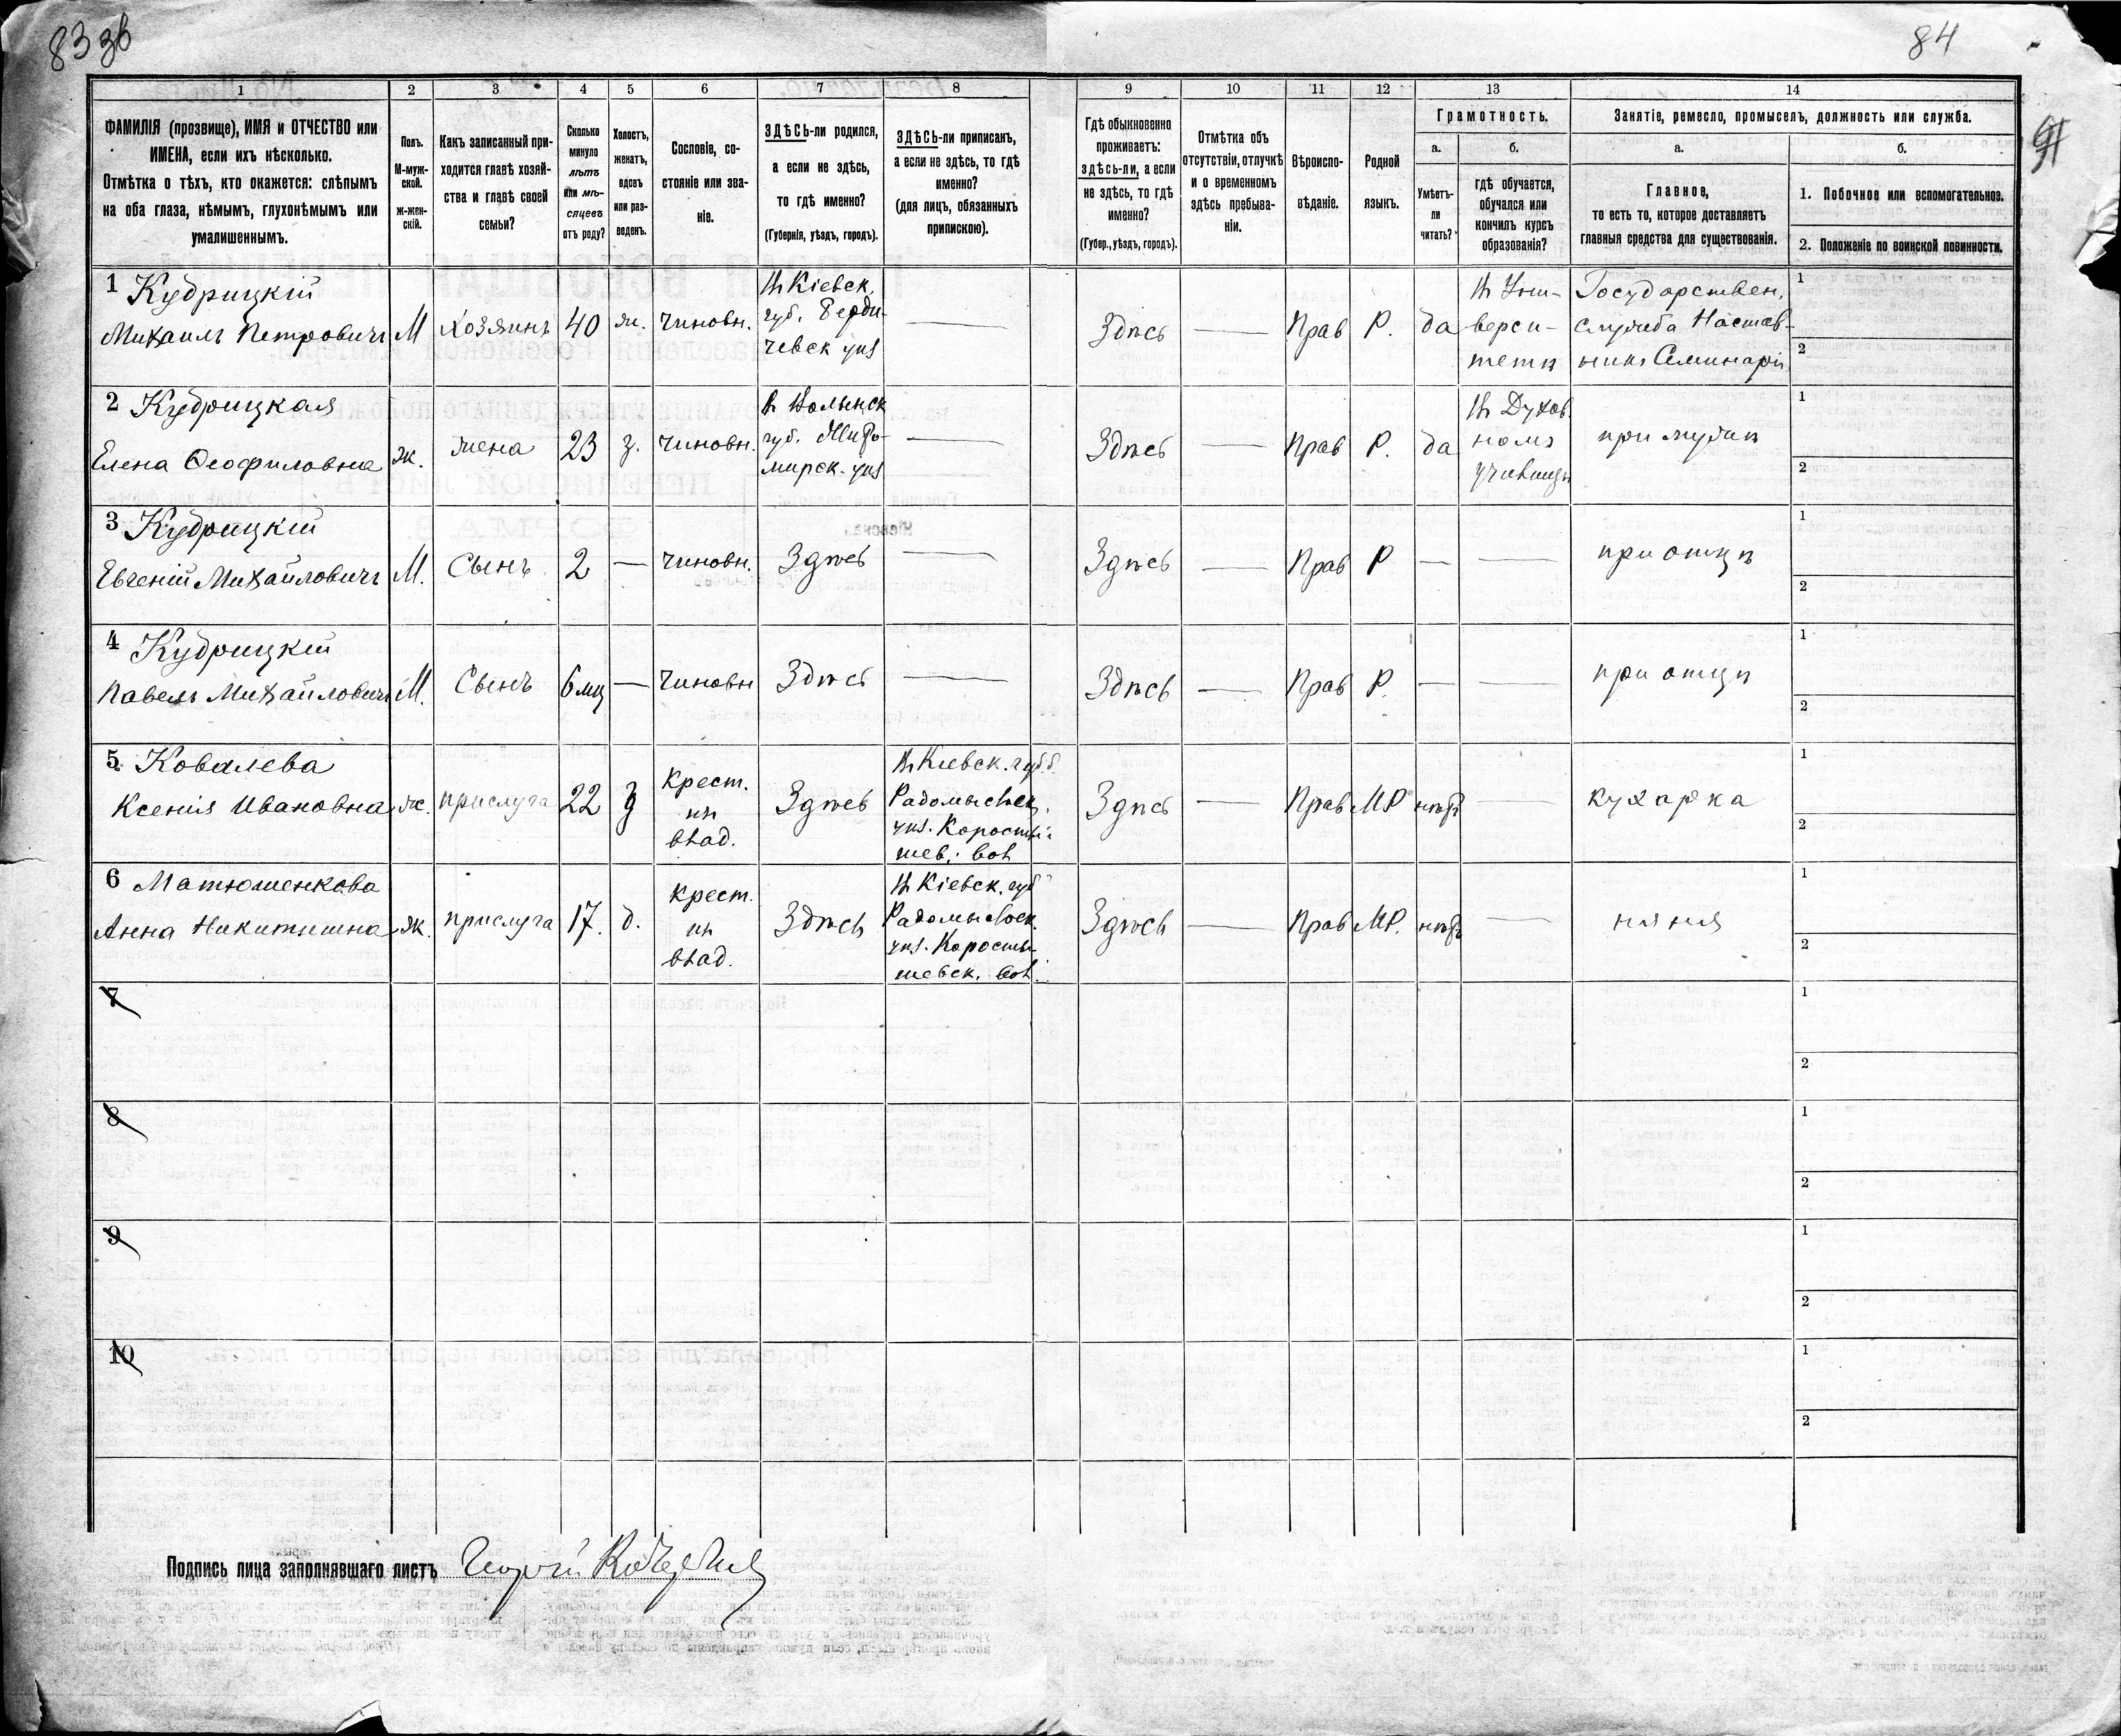 83 зв
84
91
1 2 3 4 5 6 7 8 9 10 11 12 13 14
ФАМИЛІЯ (прозвище), ИМЯ и ОТЧЕСТВО или
ИМЕНА, если ихъ нѣсколько.
Отмѣтка о тѣхъ, кто окажется: слѣпымъ
на оба глаза, нѣмымъ, глухонѣмымъ или
умалишеннымъ.
Полъ.
М-муж-
ской.
Ж-жен-
скій.
Какъ записанный при-
ходится главѣ хозяй-
ства и главѣ своей
семьи?
Сколько
минуло
лѣтъ
или мѣ-
сяцевъ
отъ роду?
Холостъ,
женатъ,
вдовъ
или раз-
веденъ.
Сословіе, со-
стояніе или зва-
ніе.
ЗДѢСЬ-ли родился,
а если не здѣсь,
то гдѣ именно?
(Губернія, уѣздъ, городъ).
ЗДѢСЬ-ли приписанъ,
а если не здѣсь, то гдѣ
именно?
(для лицъ, обязанныхъ
припискою).
Гдѣ обыкновенно
проживаетъ:
здѣсь-ли, а если
не здѣсь, то гдѣ
именно?
(Губер., уѣздъ, городъ).
Отмѣтка объ
отсутствіи, отлучкѣ
и о временномъ
здѣсь пребыва-
ніи.
Вѣроиспо-
вѣданіе.
Родной
языкъ.
Грамотность.
а.
Умѣетъ-
ли
читать?
б.
гдѣ обучается,
обучался или
кончилъ курсъ
образованія?
Занятіе, ремесло, промыселъ, должность или служба.
а.
Главное,
то есть то, которое доставляетъ
главныя средства для существованія.
б.
1. Побочное или вспомогательное.
2. Положеніе по воинской повинности.
1 Кудрицкій
Михаилъ Петровичъ
М
хозяинъ
40
ж.
чиновн.
Въ Кіевск.
губ. Берди-
чевск уѣз
—
Здѣсь
—
Прав
Р.
да
Въ Уни-
верси-
тетѣ
Государствен.
служба Настав-
никъ Семинаріи
1
2
2 Кудрицкая
Елена Ѳеофиловна
ж.
жена
23
з.
чиновн.
В Волынск
губ. Жито-
мирск. уѣз
—
Здѣсь
—
Прав
Р.
да
Въ Духов
номъ
училищѣ
при мужѣ
1
2
3 Кудрицкій
Евгеній Михайловичъ
М.
Сынъ
2
—
чиновн.
Здѣсь
—
Здѣсь
—
Прав
Р
—
—
при отцѣ
1
2
4 Кудрицкій
Павелъ Михайловичъ
М.
Сынъ
6 мц
—
чиновн
Здѣсь
—
Здѣсь
—
Прав
Р.
—
—
при отцѣ
1
2
5 Ковалева
Ксенія Ивановна
ж.
прислуга
22
з
Крест.
изъ
влад.
Здѣсь
Въ Кіевск. губ.
Радомысльск.
уѣз. Коросты-
шев. вол
Здѣсь
—
Прав
МР
нѣтъ
—
кухарка
1
2
6 Матюшенкова
Анна Никитишна
ж.
прислуга
17.
д.
крест.
изъ
влад.
Здѣсь
Въ Кіевск. губ
Радомысльск.
уѣз. Коросты-
шевск. вол.
Здѣсь
—
Прав
МР.
нѣтъ
—
няня
1
2
7
1
2
8
1
2
9
1
2
10
1
2
Подпись лица заполнявшаго листъ Георгій